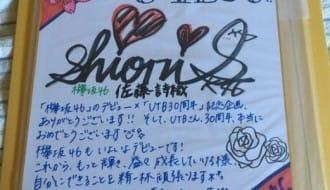 Shiori S
K46
欅坂46 佐藤詩織
「欅坂46」のデビュー×「UTB30周年」記念企画、
ありがとうございます!! そして、UTBさん、30周年、本当に
おめでとうございます
欅坂46もいよいよデビューです!
これから、もっと輝き、益々成長していける様、
自分にできることを精一杯頑張ります